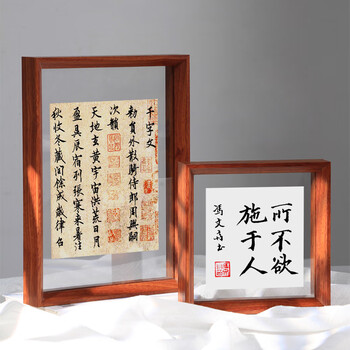 千字文
勅員外散騎侍郎周興嗣
次韻
天地玄黃宇宙洪荒日月
盈昃辰宿列張寒来暑往
秋收冬藏閏餘成歲律呂
所不欲
施于人